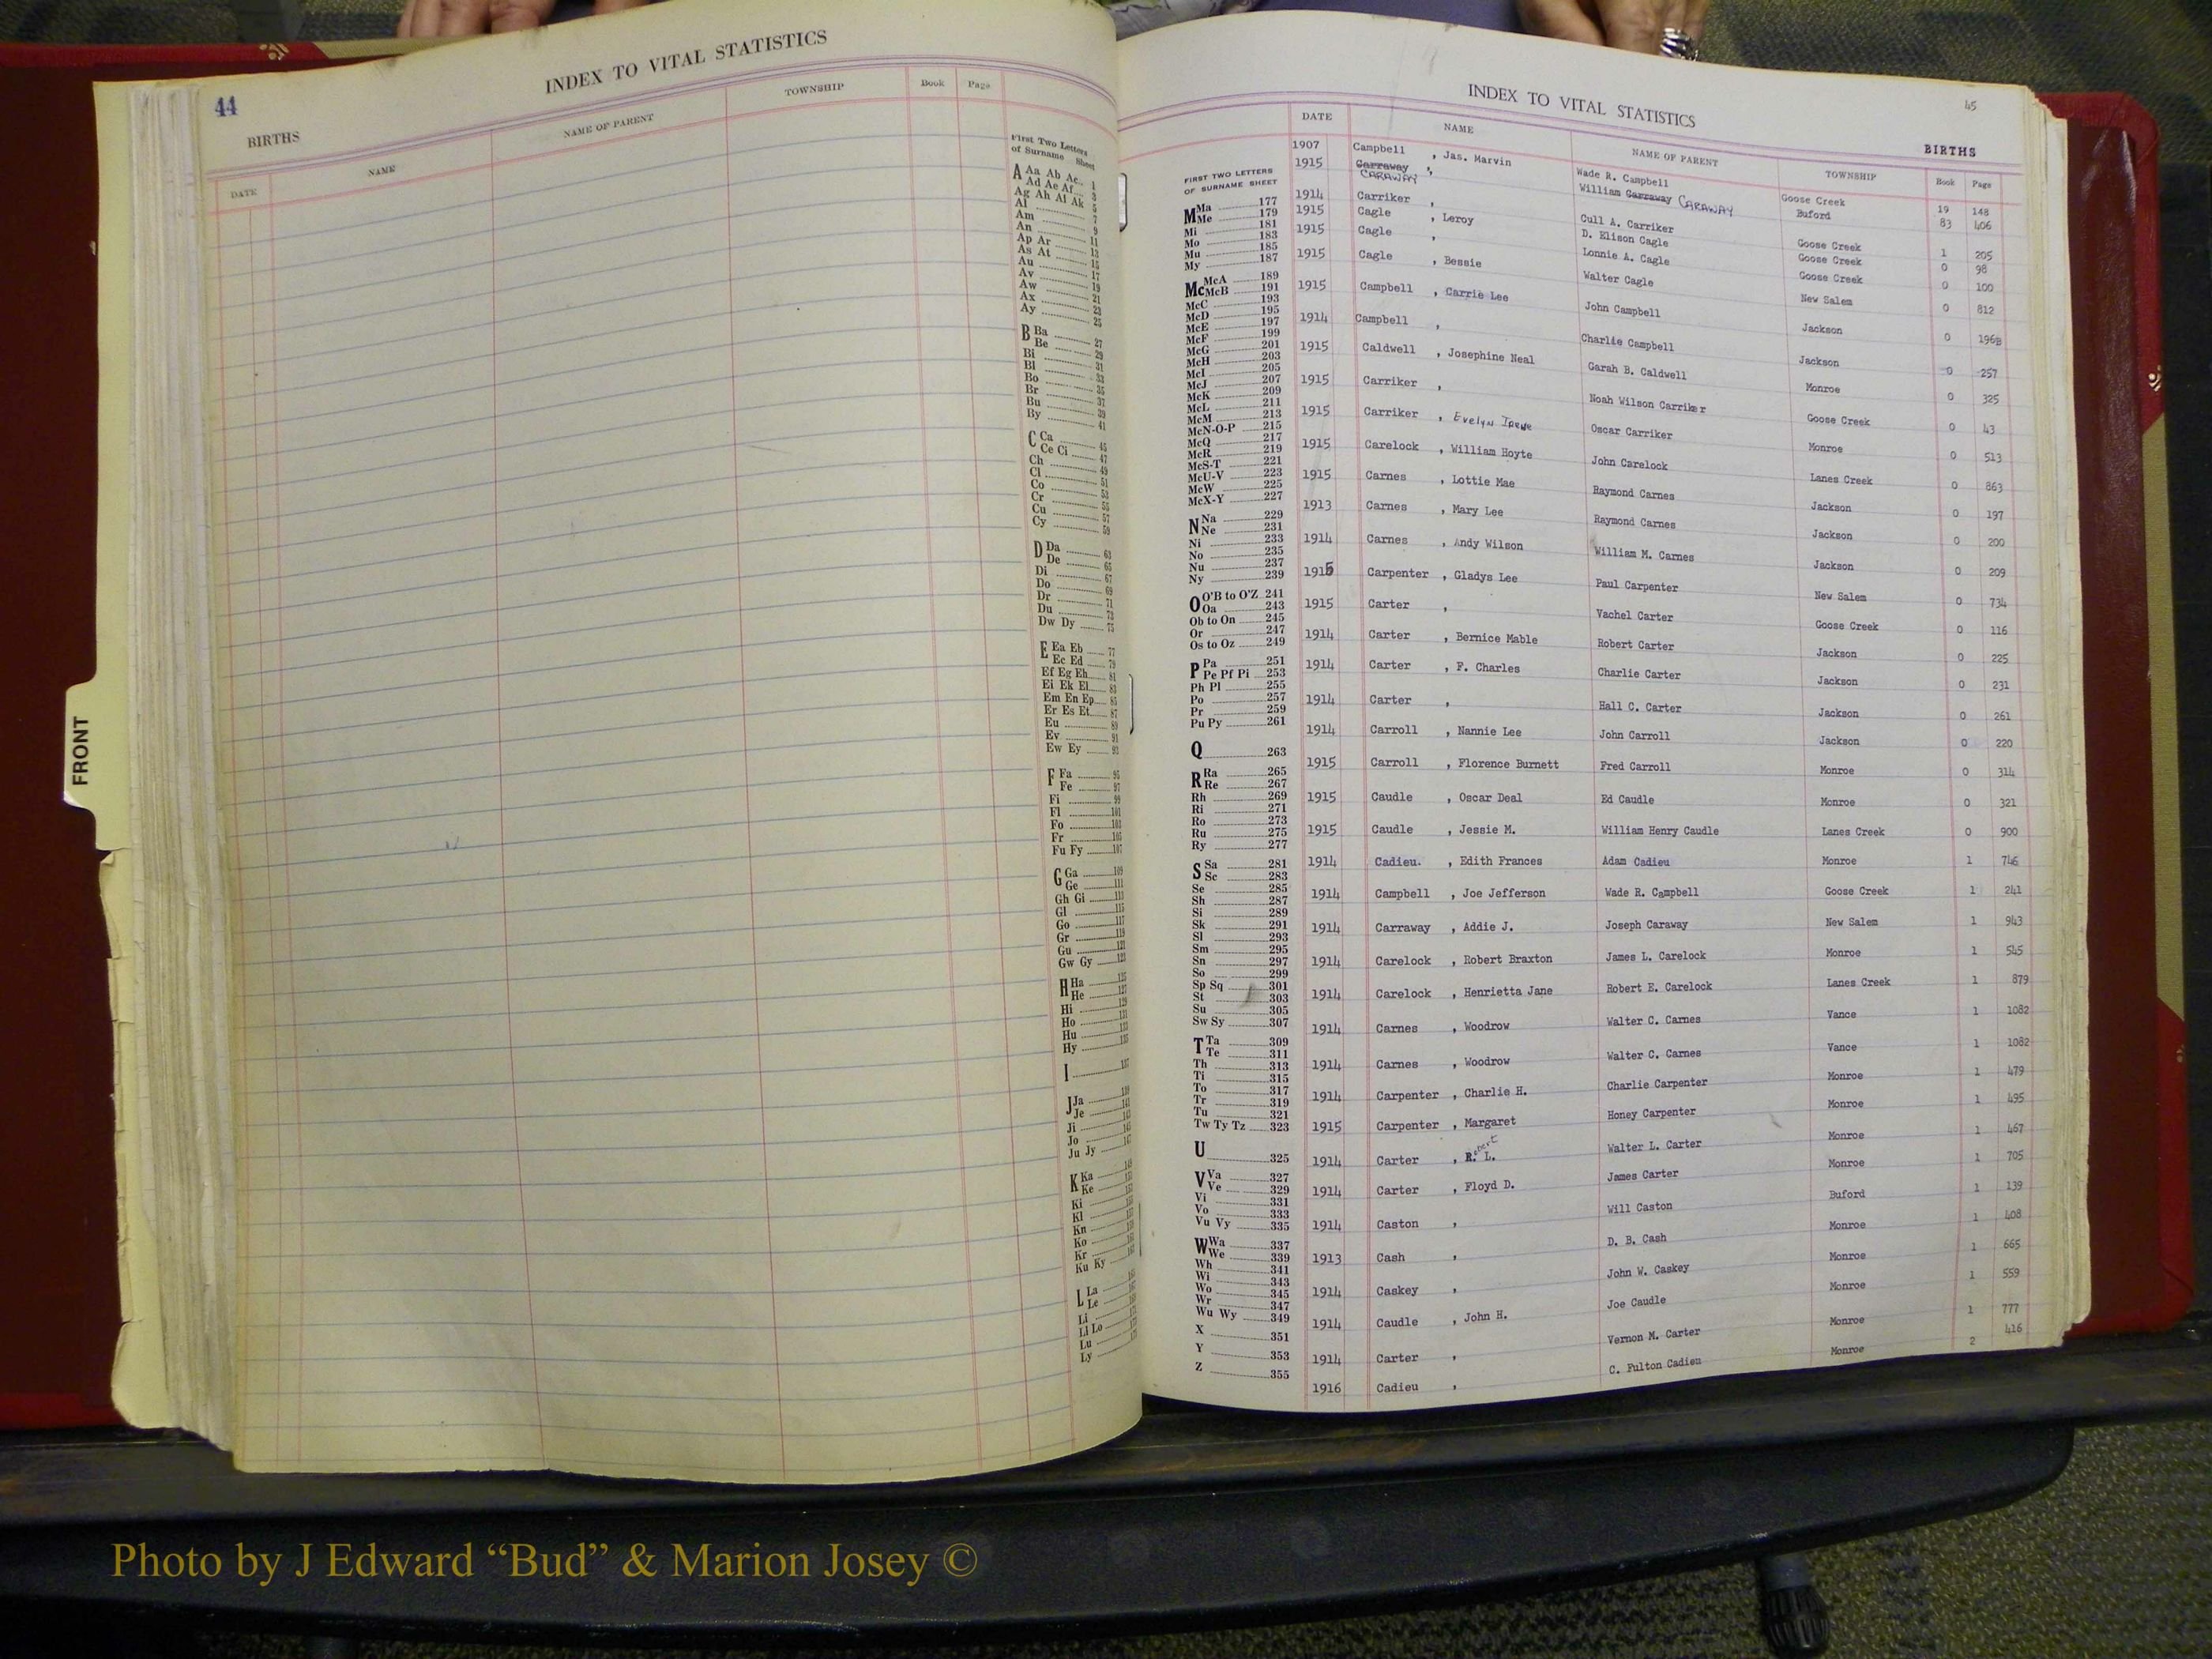 44
INDEX TO VITAL STATISTICS
BIRTHS
DATE NAME NAME OF PARENT TOWNSHIP Book Page
First Two Letters
of Surname Sheet
A Aa Ab Ac 1
Ad Ae Af 3
Ag Ah Ai Ak 5
Al 7
Am 9
An 11
Ap Ar 13
As At 15
Au 17
Av 19
Aw 21
Ax 23
Ay 25
B Ba 27
Be 29
Bi 31
Bl 33
Bo 35
Br 37
Bu 39
By 41
C Ca 45
Ce Ci 47
Ch 49
Cl 51
Co 53
Cr 55
Cu 57
Cy 59
D Da 63
De 65
Di 67
Do 69
Dr 71
Du 73
Dw Dy 75
E Ea Eb 77
Ec Ed 79
Ef Eg Eh 81
Ei Ek El 83
Em En Ep 85
Er Es Et 87
Eu 89
Ev 91
Ew Ey 93
F Fa 95
Fe 97
Fi 99
Fl 101
Fo 103
Fr 105
Fu Fy 107
G Ga 109
Ge 111
Gh Gi 113
Gl 115
Go 117
Gr 119
Gu 121
Gw Gy 123
H Ha 125
He 127
Hi 129
Ho
Hu
Hy
I 137
J Ja 139
Je 141
Ji
Jo
Ju Jy 147
K Ka 149
Ke
Ki
Kl
Kn
Ko
Kr
Ku Ky
L La
Le
Li
Ll Lo
Lu
Ly
FRONT
45
INDEX TO VITAL STATISTICS
BIRTHS
DATE NAME NAME OF PARENT TOWNSHIP Book Page
FIRST TWO LETTERS
OF SURNAME SHEET
M Ma 177
Me 179
Mi 181
Mo 183
Mu 185
My 187
Mc McA 189
McB 191
McC 193
McD 195
McE 197
McF 199
McG 201
McH 203
McI 205
McJ 207
McK 209
McL 211
McM 213
McN-O-P 215
McQ 217
McR 219
McS-T 221
McU-V 223
McW 225
McX-Y 227
N Na 229
Ne 231
Ni 233
No 235
Nu 237
Ny 239
O O'B to O'Z 241
Oa 243
Ob to On 245
Or 247
Os to Oz 249
P Pa 251
Pe Pf Pi 253
Ph Pl 255
Po 257
Pr 259
Pu Py 261
Q 263
R Ra 265
Re 267
Rh 269
Ri 271
Ro 273
Ru 275
Ry 277
S Sa 281
Sc 283
Se 285
Sh 287
Si 289
Sk 291
Sl 293
Sm 295
Sn 297
So 299
Sp Sq 301
St 303
Su 305
Sw Sy 307
T Ta 309
Te 311
Th 313
Ti 315
To 317
Tr 319
Tu 321
Tw Ty Tz 323
U 325
V Va 327
Ve 329
Vi 331
Vo 333
Vu Vy 335
W Wa 337
We 339
Wh 341
Wi 343
Wo 345
Wr 347
Wu Wy 349
X 351
Y 353
Z 355
1907 Campbell , Jas. Marvin Wade R. Campbell Goose Creek 19 148
1915 Carraway , William Carraway CARAWAY Buford 83 406
CARAWAY
1914 Carriker , Cull A. Carriker Goose Creek 1 205
1915 Cagle , Leroy D. Elison Cagle Goose Creek 0 98
1915 Cagle , Lonnie A. Cagle Goose Creek 0 100
1915 Cagle , Bessie Walter Cagle New Salem 0 812
1915 Campbell , Carrie Lee John Campbell Jackson 0 196B
1914 Campbell , Charlie Campbell Jackson 0 257
1915 Caldwell , Josephine Neal Garah B. Caldwell Monroe 0 325
1915 Carriker , Noah Wilson Carriker Goose Creek 0 43
1915 Carriker , Evelyn Irene Oscar Carriker Monroe 0 513
1915 Carelock , William Hoyte John Carelock Lanes Creek 0 863
1915 Carnes , Lottie Mae Raymond Carnes Jackson 0 197
1913 Carnes , Mary Lee Raymond Carnes Jackson 0 200
1914 Carnes , Andy Wilson William M. Carnes Jackson 0 209
1915 Carpenter , Gladys Lee Paul Carpenter New Salem 0 734
1915 Carter , Vachel Carter Goose Creek 0 116
1914 Carter , Bernice Mable Robert Carter Jackson 0 225
1914 Carter , F. Charles Charlie Carter Jackson 0 231
1914 Carter , Hall C. Carter Jackson 0 261
1914 Carroll , Nannie Lee John Carroll Jackson 0 220
1915 Carroll , Florence Burnett Fred Carroll Monroe 0 314
1915 Caudle , Oscar Deal Ed Caudle Monroe 0 321
1915 Caudle , Jessie M. William Henry Caudle Lanes Creek 0 900
1914 Cadieu. , Edith Frances Adam Cadieu Monroe 1 746
1914 Campbell , Joe Jefferson Wade R. Campbell Goose Creek 1 241
1914 Carraway , Addie J. Joseph Caraway New Salem 1 943
1914 Carelock , Robert Braxton James L. Carelock Monroe 1 545
1914 Carelock , Henrietta Jane Robert E. Carelock Lanes Creek 1 879
1914 Carnes , Woodrow Walter C. Carnes Vance 1 1082
1914 Carnes , Woodrow Walter C. Carnes Vance 1 1082
1914 Carpenter , Charlie H. Charlie Carpenter Monroe 1 479
1915 Carpenter , Margaret Honey Carpenter Monroe 1 495
1914 Carter , Robert L. Walter L. Carter Monroe 1 467
1914 Carter , Floyd D. James Carter Monroe 1 705
1914 Caston , Will Caston Buford 1 139
1913 Cash , D. B. Cash Monroe 1 408
1914 Caskey , John W. Caskey Monroe 1 665
1914 Caudle , John H. Joe Caudle Monroe 1 559
1914 Carter , Vernon M. Carter Monroe 1 777
1916 Cadieu , C. Fulton Cadieu Monroe 2 416
Photo by J Edward “Bud” & Marion Josey ©